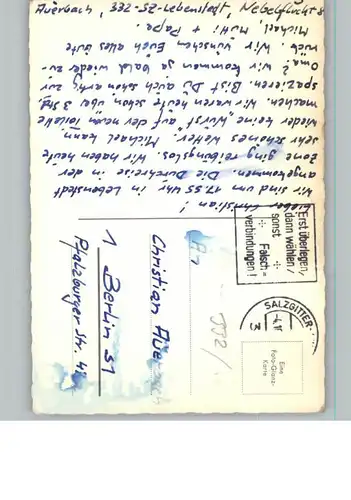 Lieber Christian!
Wir sind um 17.55 Uhr in Lebenstedt
angekommen. Die Durchreise in der
Zone ging reibungslos. Wir haben heute
sehr schönes Wetter. Michael kann
wieder keine "Wurst" auf der neuen Toilette
machen. Wir waren heute schon über 3 Std.
spazieren. Bist Du schön artig zur
Oma? Wir kommen ja bald wieder zu-
rück. Wir wünschen Euch alles Gute
Michael, Mutti + Papa.
Auerbach, 332-SZ-Lebenstedt,
Erst überlegen,
dann wählen/
sonst ÷ Falsch-
÷ verbindungen!
SALZGITTER-
3
Eine
Foto-Glanz-
Karte
An
Christian Auerbach
1 Berlin 31
Pfalzburger Str.